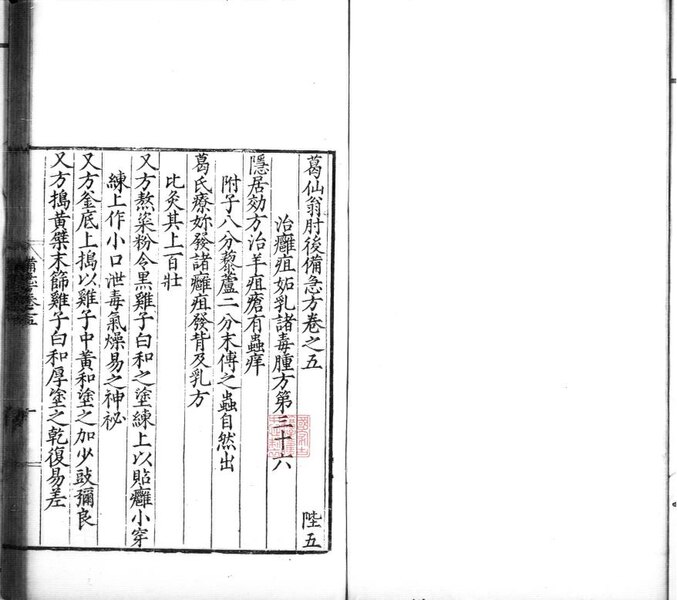 葛仙翁肘後備急方卷之五 陛五
治癰疽妬乳諸毒腫方第三十六
隱居効方治羊疽瘡有蟲痒
附子八分藜蘆二分末傅之蟲自然出
葛氏療妳發諸癰疽發背及乳方
比灸其上百壯
又方熬粢粉令黑雞子白和之塗練上以貼癰小穿
練上作小口泄毒氣燥易之神祕
又方釜底上搗以雞子中黃和塗之加少豉彌良
又方搗黃蘗末篩雞子白和厚塗之乾復易差
備急卷五